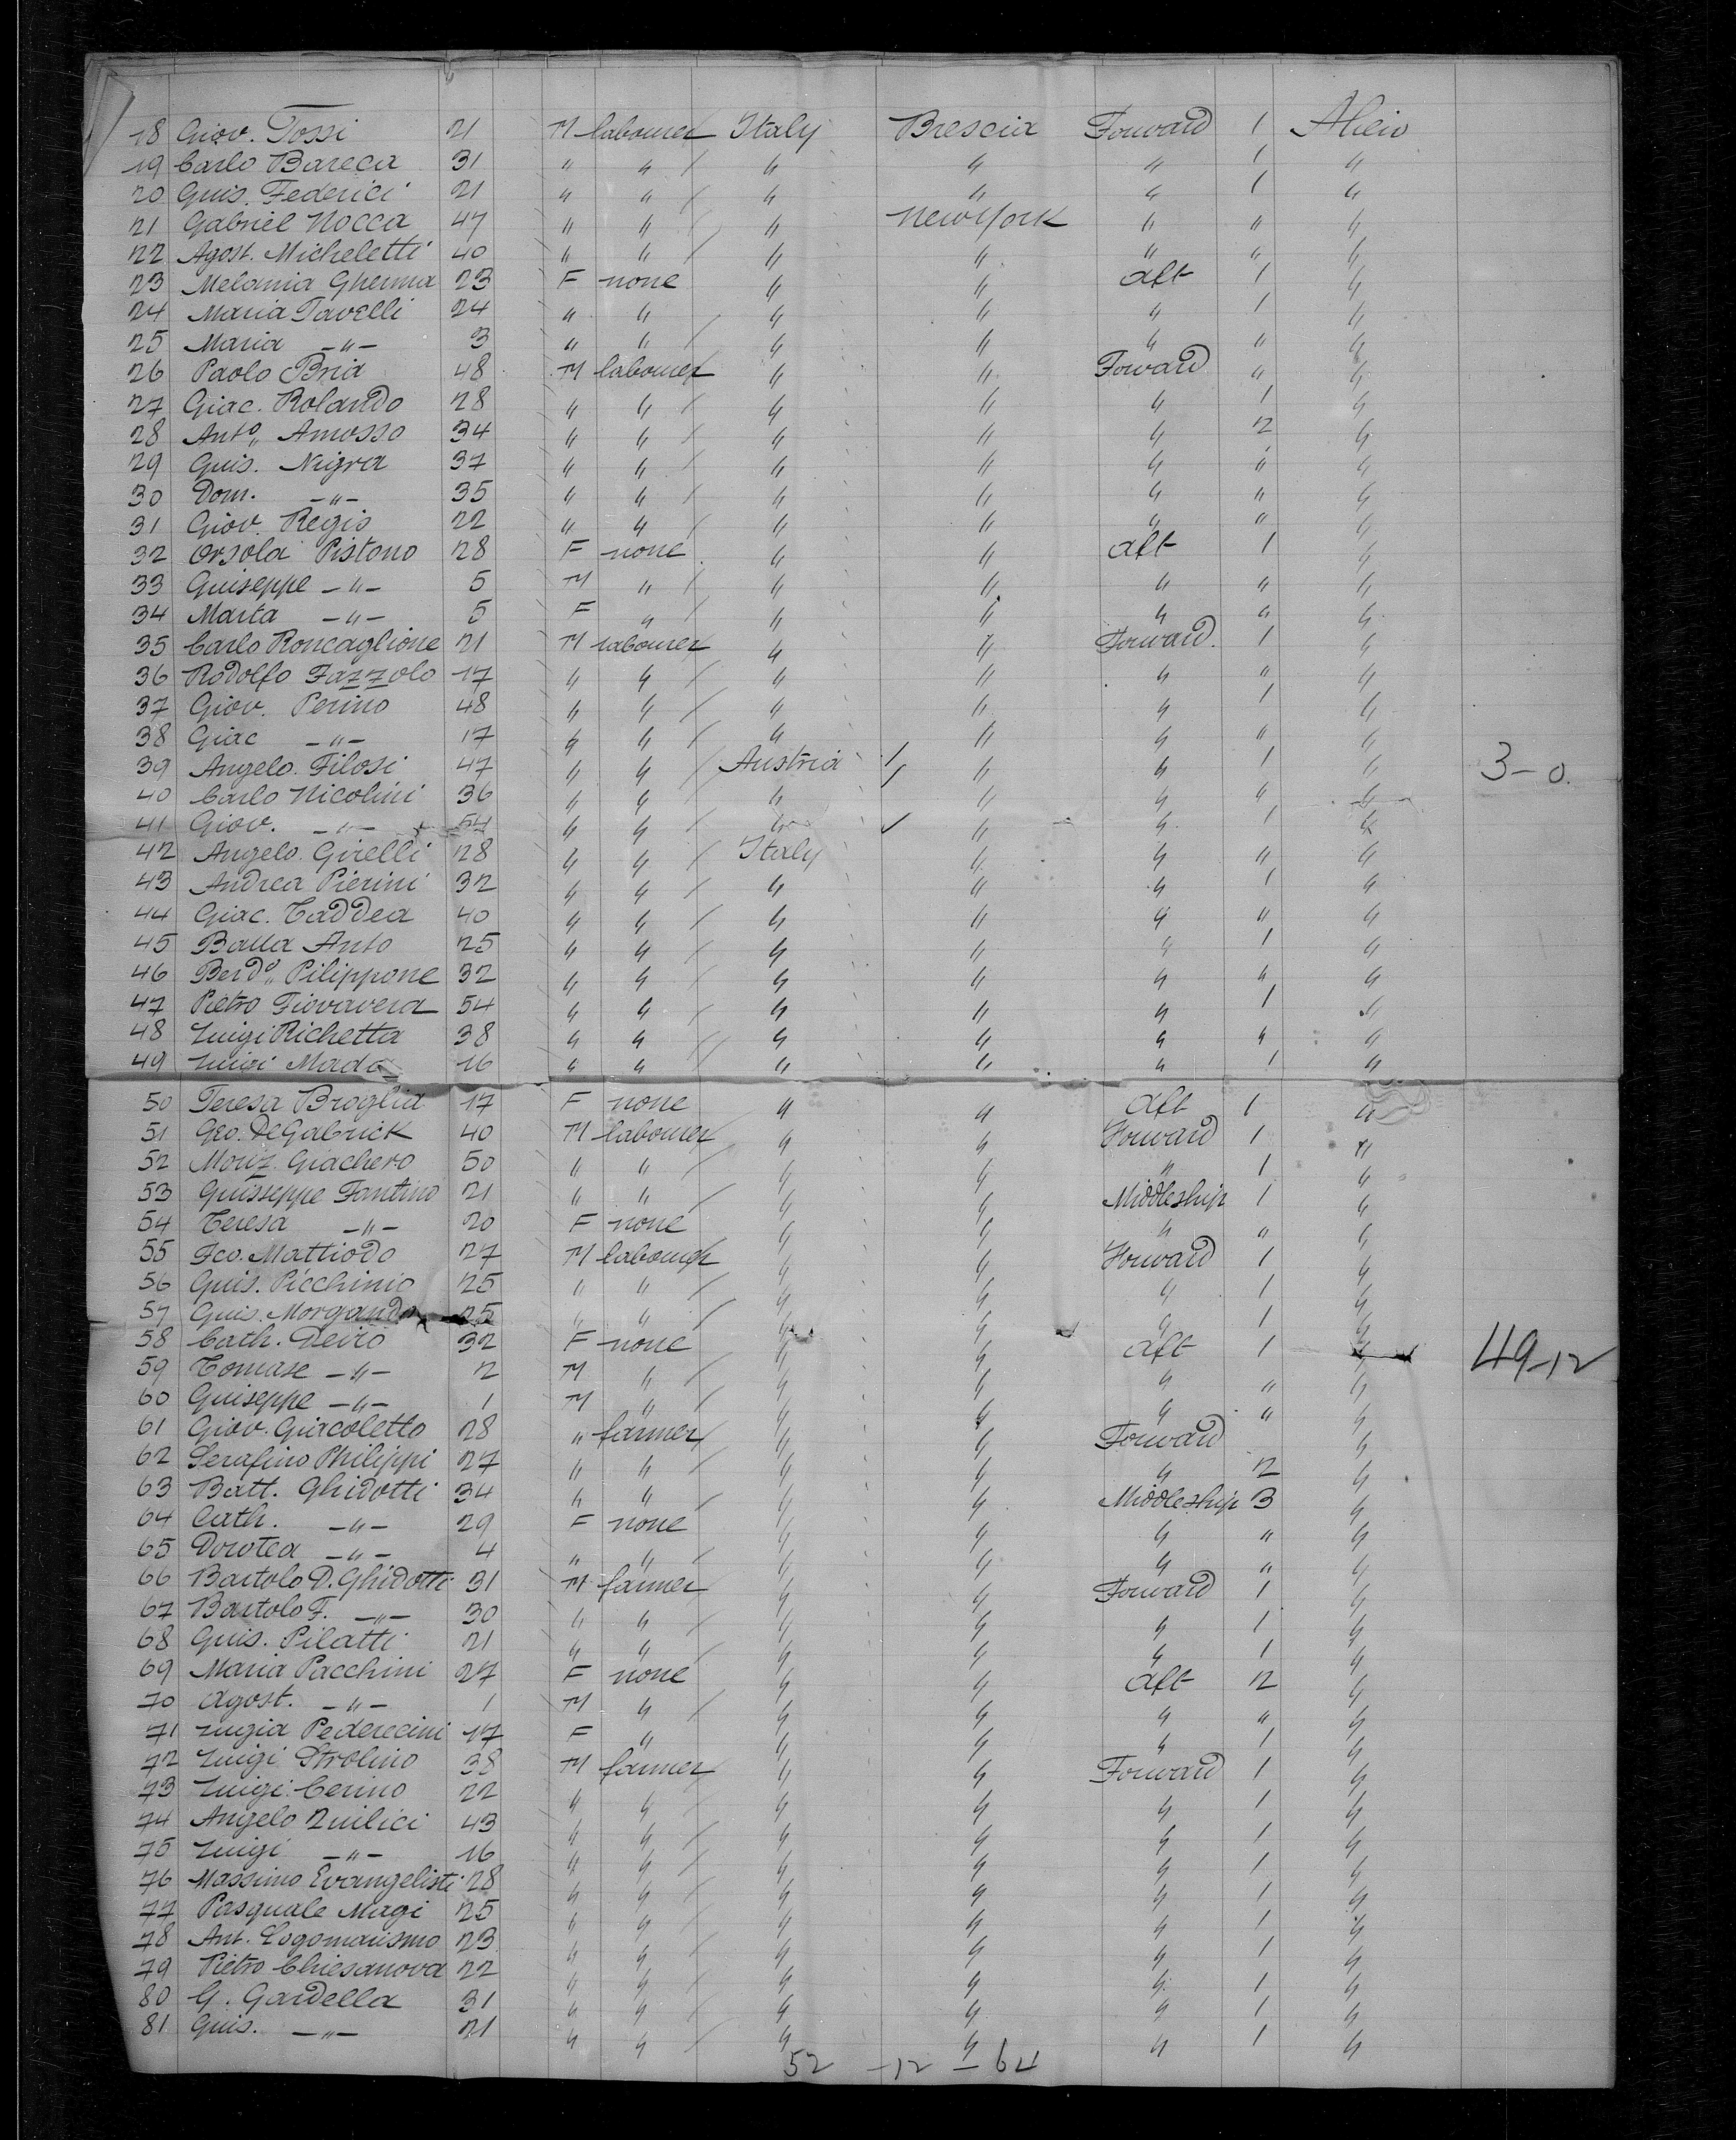 18 Giov. Tossi 21 M labourer Italy Brescia Forward 1 Alien
19 Carlo Bareca 31 " " / " " " 1 "
20 Guis. Federici 21 " " / " " " 1 "
21 Gabriel Nocca 47 " " / " New York " " "
22 Agost. Micheletti 40 " " / " " " " "
23 Melania Gherma 23 F none " " aft 1 "
24 Maria Tavelli 24 " " " " " 1 "
25 Maria -"- 3 " " / " " " " "
26 Paolo Bria 48 M labourer " " Forward " "
27 Giac. Rolando 28 " " / " " " 1 "
28 Anto. Amosso 34 " " / " " " 2 "
29 Guis. Nigra 37 " " / " " " " "
30 Dom. -"- 35 " " / " " " " "
31 Giov. Regis 22 " " / " " " " "
32 Orsola Pistono 28 F none " " aft 1 "
33 Guiseppe -"- 5 M " / " " " " "
34 Marta -"- 5 F " / " " " " "
35 Carlo Roncaglione 21 M labourer " " Forward. 1 "
36 Rodolfo Fazzolo 17 " " / " " " " "
37 Giov. Perino 48 " " / " " " 1 "
38 Giac -"- 17 " " / " " " " "
39 Angelo. Filosi 47 " " / Austria / " " 1 " 3-0.
40 Carlo Nicolini 36 " " / " / " " " "
41 Giov. -"- 54 " " / " ✓ " " 1 "
42 Angelo Girelli 28 " " / Italy " " " "
43 Andrea Pierini 32 " " / " " " 1 "
44 Giac. Taddea 40 " " / " " " " "
45 Balla Anto 25 " " / " " " 1 "
46 Berdo. Pilippone 32 " " / " " " " "
47 Pietro Fiovavera 54 " " / " " " 1 "
48 Luigi Richetta 38 " " / " " " " "
49 Luigi Mado 16 " " / " " " 1 "
50 Teresa Broglia 17 F none " " aft 1 "
51 Geo. De Gabrick 40 M labourer " " Forward 1 "
52 Mouz. Giachero 50 " " / " " " 1 "
53 Guisseppe Fantino 21 " " / " " Middleship 1 "
54 Teresa -"- 20 F none " " " " "
55 Fco. Mattiodo 27 M labourer " " Forward 1 "
56 Guis. Picchinio 25 " " / " " " 1 "
57 Guis. Morgando 25 " " / " " " 1 "
58 Cath. Deiro 32 F none " " aft 1 " 49-12
59 Tomase -"- 2 M " / " " " " "
60 Guiseppe -"- 1 M " / " " " " "
61 Giov. Giacoletto 28 " farmer " " Forward "
62 Serafino Philippi 27 " " / " " " 2 "
63 Batt. Ghidotti 34 " " / " " Middleship 3 "
64 Cath. -"- 29 F none " " " " "
65 Dorotea -"- 4 " " / " " " " "
66 Bartolo D. Ghidotti 31 M farmer " " Forward 1 "
67 Bartolo F. -"- 30 " " / " " " 1 "
68 Guis. Pilatti 21 " " / " " " 1 "
69 Maria Pacchini 27 F none " " aft 2 "
70 Agost. -"- 1 M " / " " " " "
71 Lugia Pederecini 17 F " / " " " 1 "
72 Luigi Strolino 38 M farmer " " Forward 1 "
73 Luigi Cerino 22 " " / " " " 1 "
74 Angelo Quilici 43 " " / " " " 1 "
75 Luigi -"- 16 " " / " " " 1 "
76 Massimo Evangelisti 28 " " / " " " 1 "
77 Pasquale Magi 25 " " / " " " 1 "
78 Ant. Logomarismo 23 " " / " " " 1 "
79 Pietro Chiesanova 22 " " / " " " 1 "
80 G. Gardella 31 " " / " " " 1 "
81 Guis. -"- 21 " " / " " " 1 "
52 -12 - 64